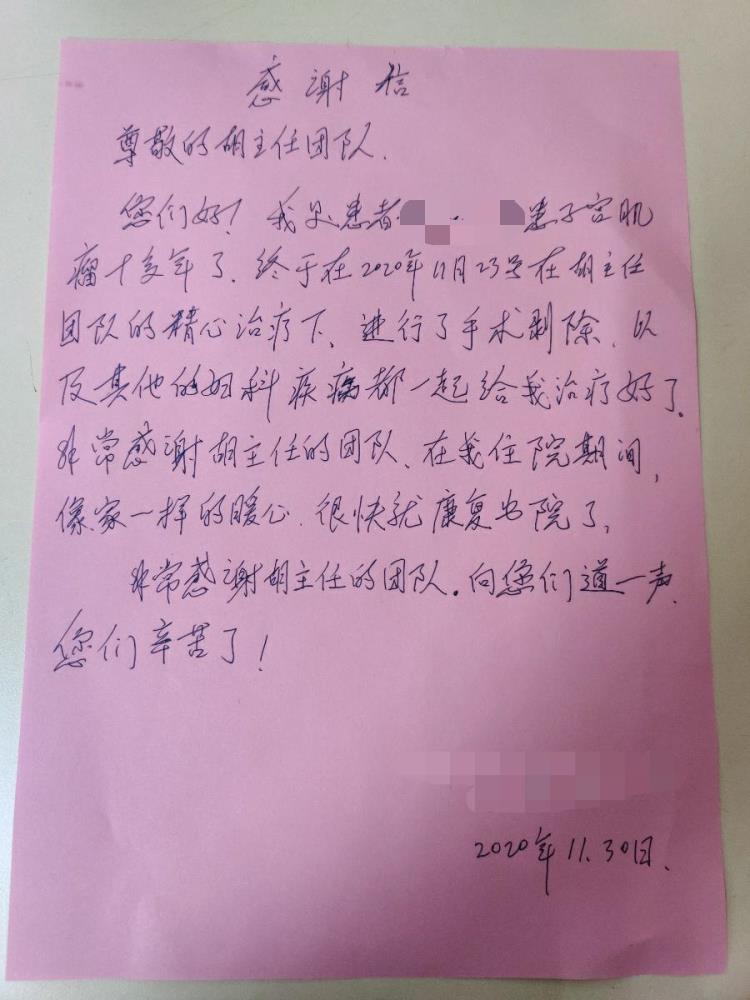 感谢信
尊敬的胡主任团队.
您们好！我是患者 患子宫肌
瘤十多年了.终于在2020年11月23号在胡主任
团队的精心治疗下、进行了手术剥除、以
及其他的妇科疾病都一起给我治疗好了.
非常感谢胡主任的团队、在我住院期间,
像家一样的暖心.很快就康复出院了,
非常感谢胡主任的团队.向您们道一声.
您们辛苦了！
2020年11.30日.